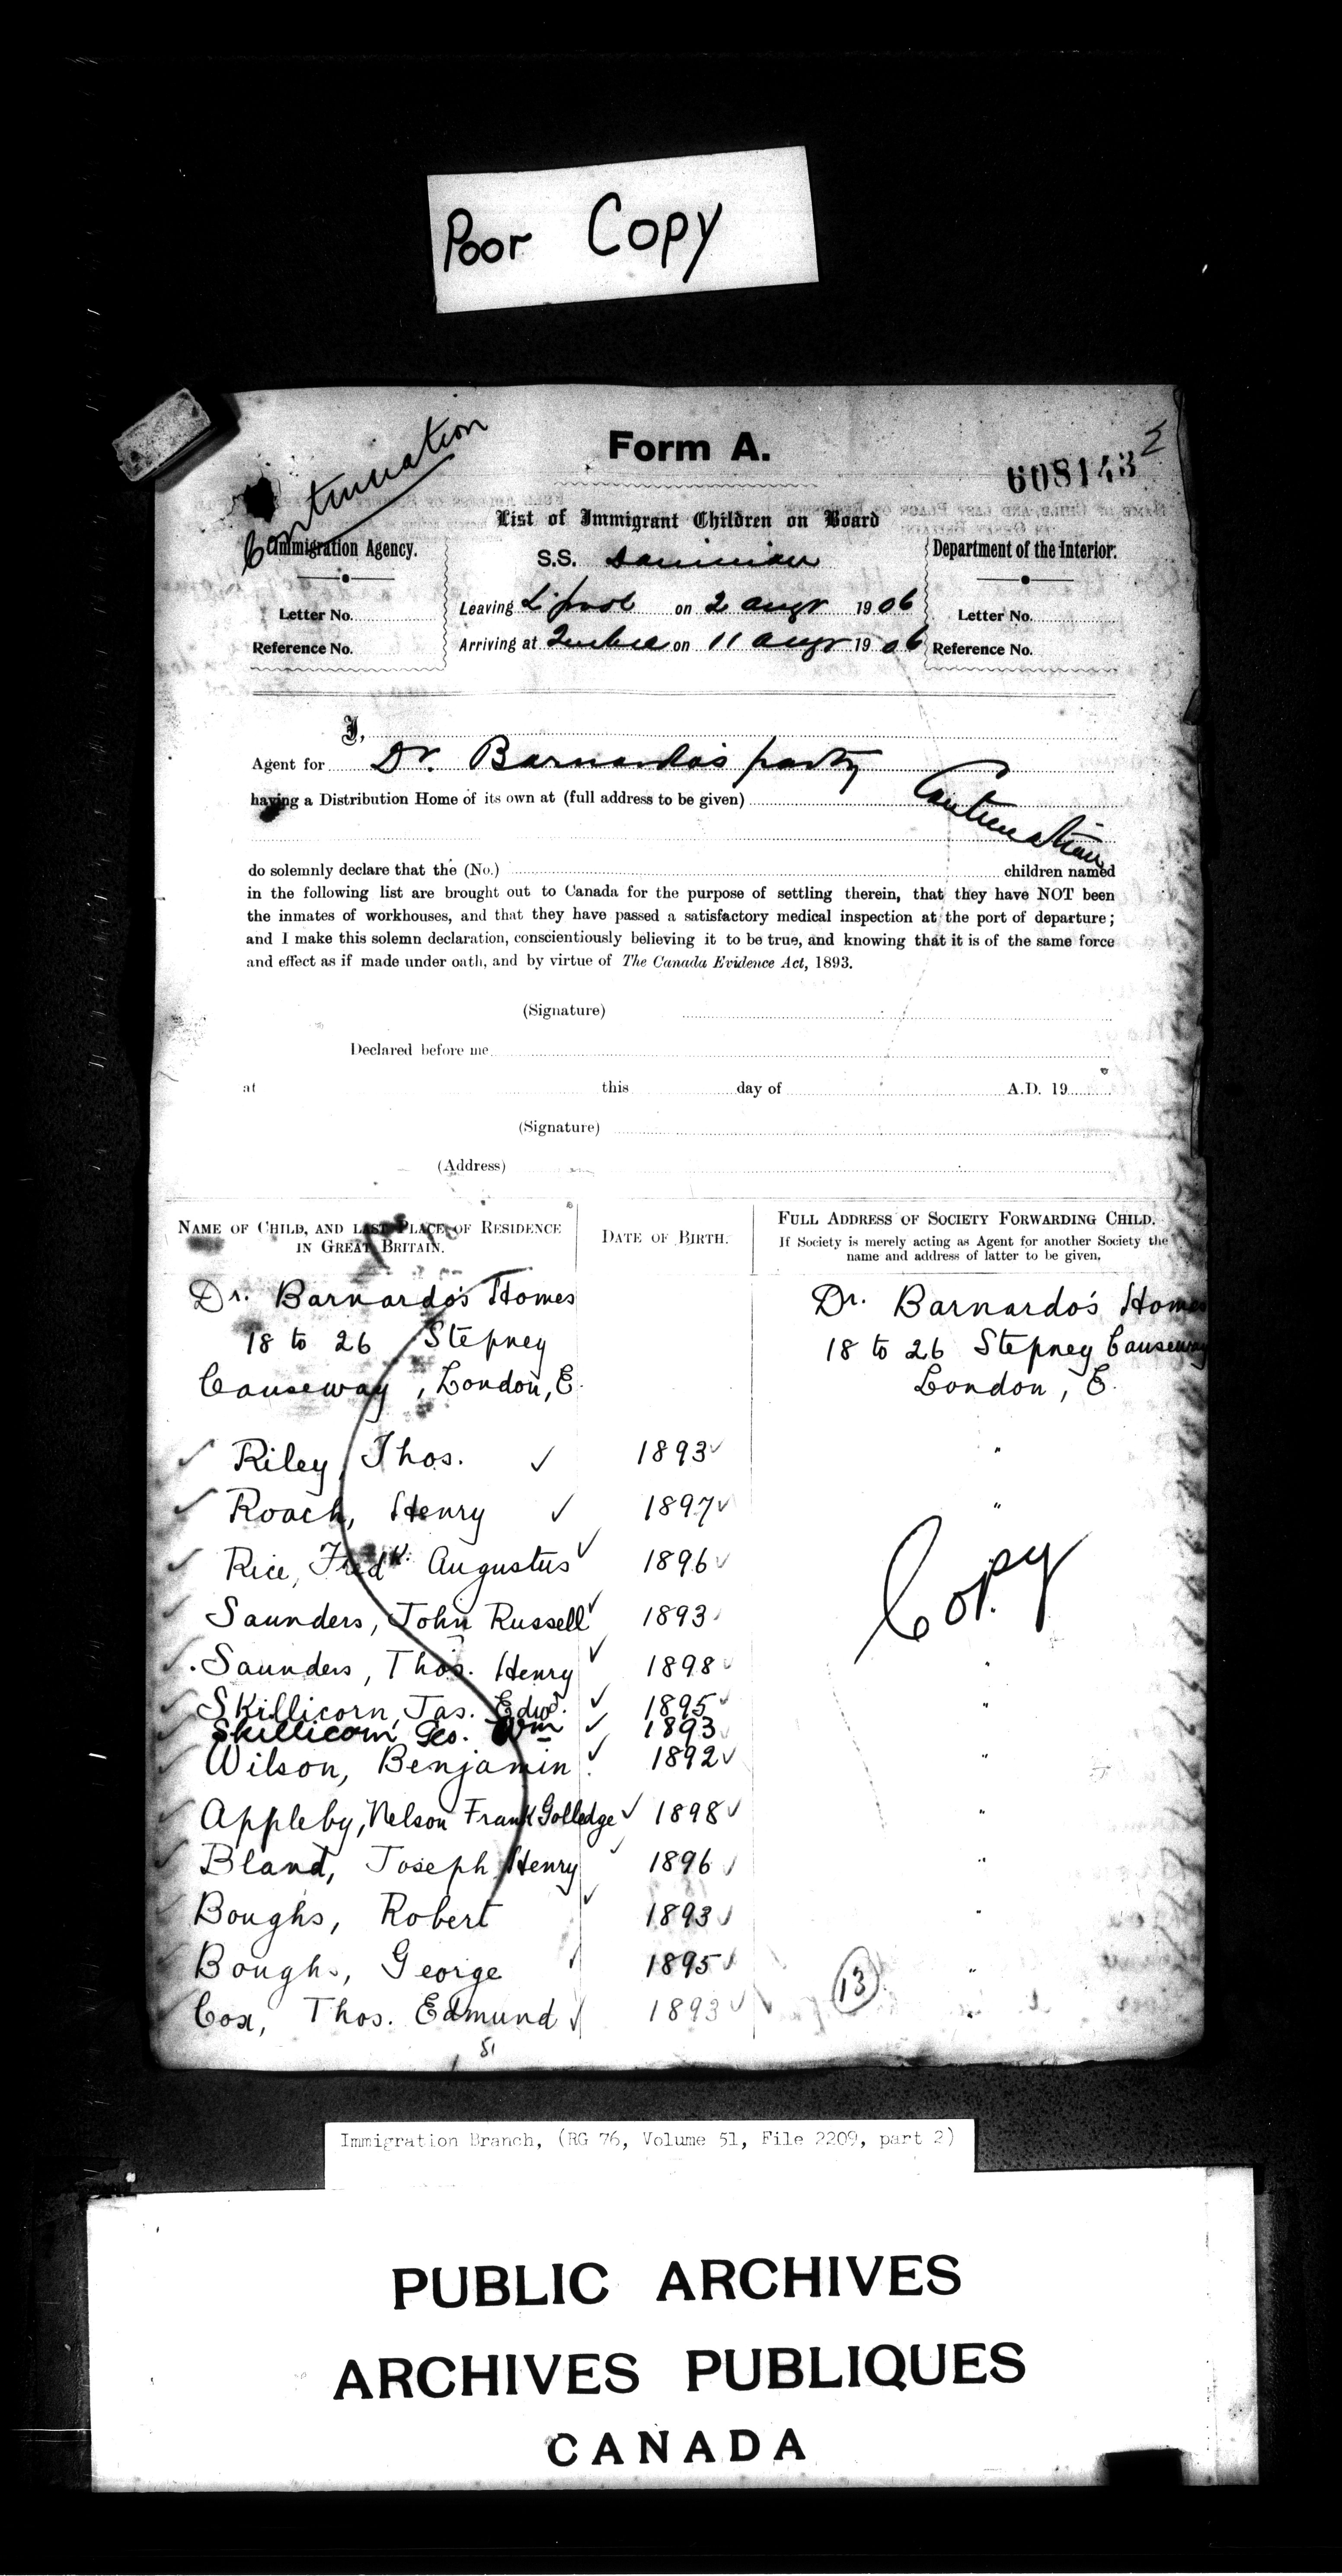 Poor Copy
Continuation
Form A.
608143
2
List of Immigrant Children on Board
Immigration Agency.
S.S. Sarmian
Department of the Interior.
Letter No.
Leaving L'pool on 2 augr 1906
Letter No.
Reference No.
Arriving at Quebec on 11 augr 1906
Reference No.
I,
Agent for Dr. Barnardo's party
having a Distribution Home of its own at (full address to be given)
Continuation
do solemnly declare that the (No.) children named
in the following list are brought out to Canada for the purpose of settling therein, that they have NOT been
the inmates of workhouses, and that they have passed a satisfactory medical inspection at the port of departure;
and I make this solemn declaration, conscientiously believing it to be true, and knowing that it is of the same force
and effect as if made under oath, and by virtue of The Canada Evidence Act, 1893.
(Signature)
Declared before me
at this day of A.D. 19
(Signature)
(Address)
NAME OF CHILD, AND LAST PLACE OF RESIDENCE
IN GREAT BRITAIN.
DATE OF BIRTH.
FULL ADDRESS OF SOCIETY FORWARDING CHILD.
If Society is merely acting as Agent for another Society the
name and address of latter to be given.
Dr. Barnardo's Homes
18 to 26 Stepney
Causeway, London, E.
Dr. Barnardo's Homes
18 to 26 Stepney Causeway
London, E.
✓ Riley, Thos. ✓ 1893 ✓ "
✓ Roach, Henry ✓ 1897 ✓ "
✓ Rice, Fredk. Augustus ✓ 1896 ✓
Copy
✓ Saunders, John Russell ✓ 1893 ✓
✓ Saunders, Thos. Henry ✓ 1898 ✓ "
✓ Skillicorn, Jas. Edwd. ✓ 1895 ✓ "
Skillicorn Geo. Wm ✓ 1893 ✓
✓ Wilson, Benjamin ✓ 1892 ✓ "
✓ Appleby, Nelson Frank Golledge ✓ 1898 ✓ "
✓ Bland, Joseph Henry ✓ 1896 ✓ "
✓ Boughs, Robert ✓ 1893 ✓ "
✓ Boughs, George ✓ 1895 ✓ "
13
✓ Cox, Thos. Edmund ✓ 1893 ✓ "
Immigration Branch, (RG 76, Volume 51, File 2209, part 2)
PUBLIC ARCHIVES
ARCHIVES PUBLIQUES
CANADA